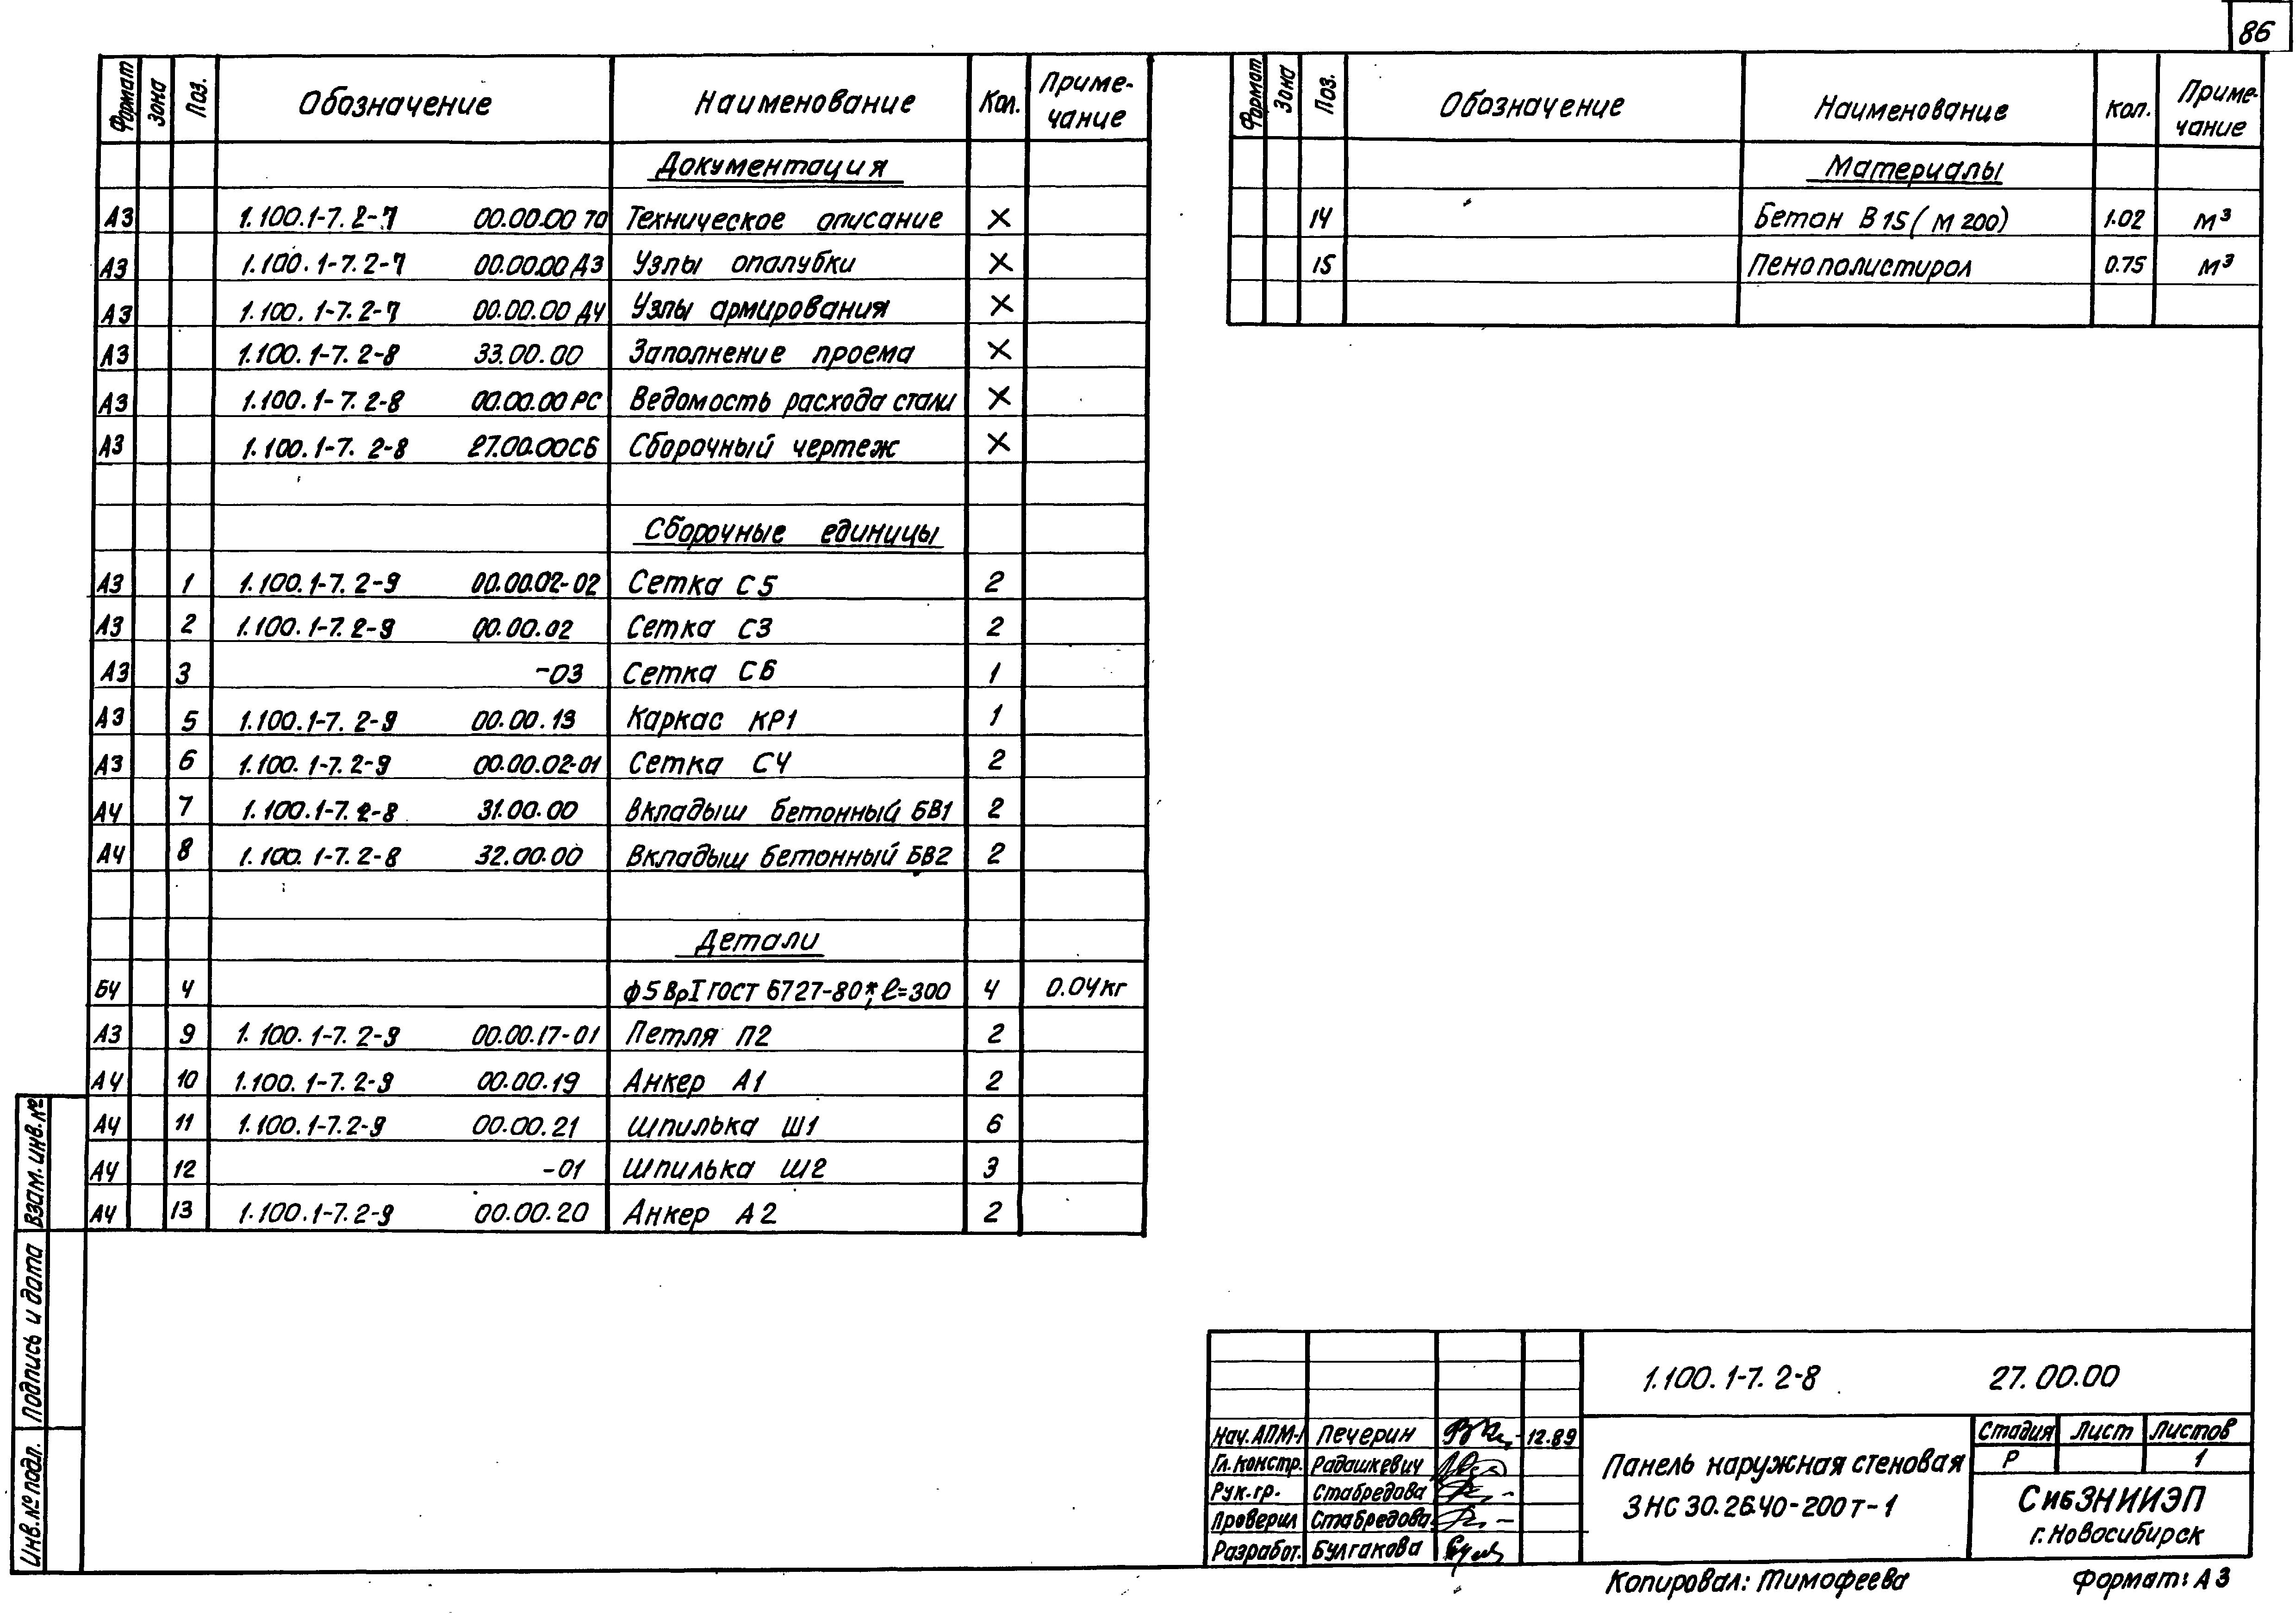 86
Формат Зона Поз. Обозначение Наименование Кол. Приме-
чание
Документация
А3 1.100.1-7.2-7 00.00.00 ТО Техническое описание ×
А3 1.100.1-7.2-7 00.00.00 Д3 Узлы опалубки ×
А3 1.100.1-7.2-7 00.00.00 Д4 Узлы армирования ×
А3 1.100.1-7.2-8 33.00.00 Заполнение проема ×
А3 1.100.1-7.2-8 00.00.00 РС Ведомость расхода стали ×
А3 1.100.1-7.2-8 27.00.00 СБ Сборочный чертеж ×
Сборочные единицы
А3 1 1.100.1-7.2-9 00.00.02-02 Сетка С5 2
А3 2 1.100.1-7.2-9 00.00.02 Сетка С3 2
А3 3 -03 Сетка С6 1
А3 5 1.100.1-7.2-9 00.00.13 Каркас КР1 1
А3 6 1.100.1-7.2-9 00.00.02-01 Сетка С4 2
А4 7 1.100.1-7.2-8 31.00.00 Вкладыш бетонный БВ1 2
А4 8 1.100.1-7.2-8 32.00.00 Вкладыш бетонный БВ2 2
Детали
БЧ 4 ф5 ВрI ГОСТ 6727-80*, ℓ=300 4 0.04 кг
А3 9 1.100.1-7.2-9 00.00.17-01 Петля П2 2
А4 10 1.100.1-7.2-9 00.00.19 Анкер А1 2
А4 11 1.100.1-7.2-9 00.00.21 Шпилька Ш1 6
А4 12 -01 Шпилька Ш2 3
А4 13 1.100.1-7.2-9 00.00.20 Анкер А2 2
Формат Зона Поз. Обозначение Наименование Кол. Приме-
чание
Материалы
14 Бетон В15 (М200) 1.02 м³
15 Пенополистирол 0.75 м³
Взам. инв. №
Подпись и дата
Инв. № подл.
1.100.1-7.2-8 27.00.00
Нач. АПМ-1 Печерин 12.89
Гл. констр. Радашкевич
Рук. гр. Стабредова
Проверил Стабредова
Разработ. Булгакова
Панель наружная стеновая
3НС 30.26.40-200т-1
Стадия Лист Листов
Р 1
СибЗНИИЭП
г. Новосибирск
Копировал: Тимофеева Формат: А3